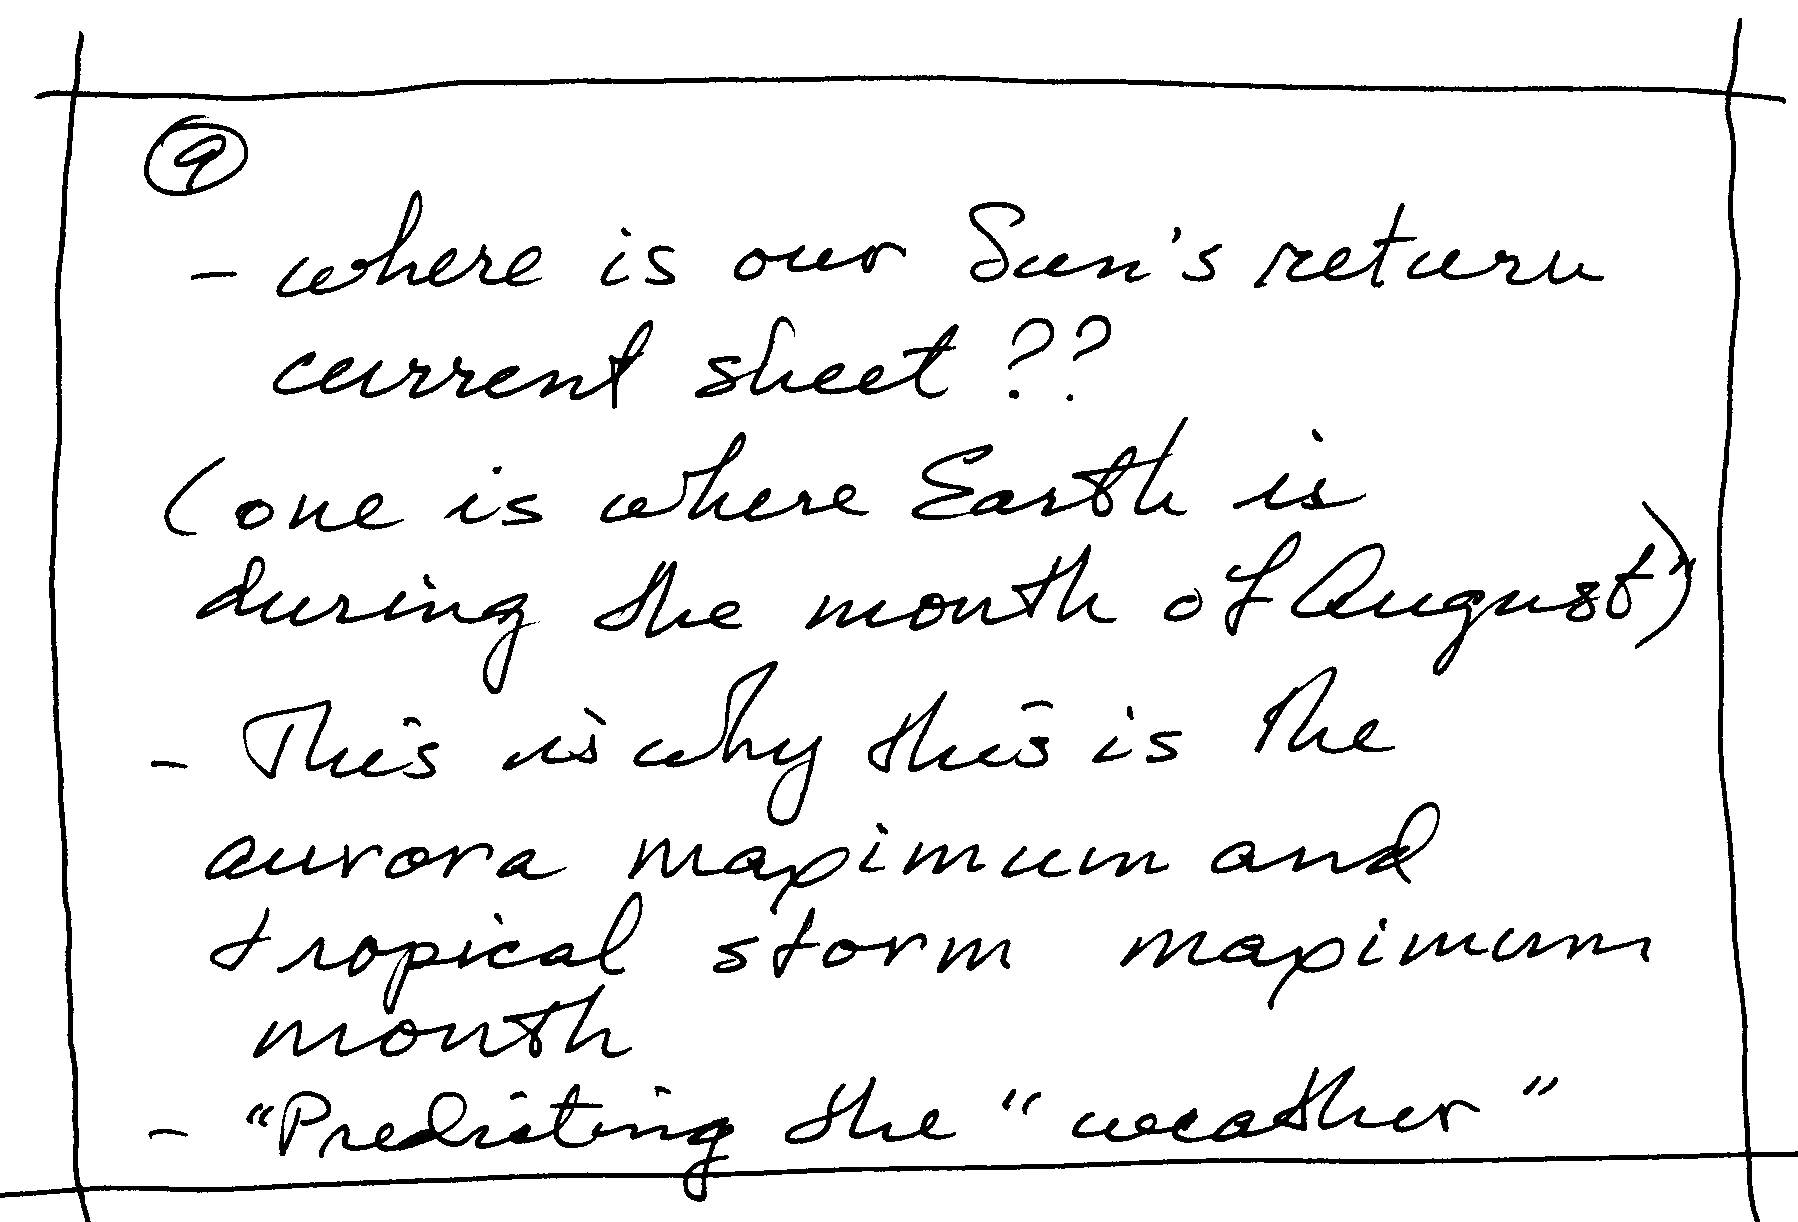 9
- where is our Sun's return
current sheet ??
(one is where Earth is
during the month of August")
- This is why this is the
aurora maximum and
tropical storm maximum
month
- "Predicting the "weather"